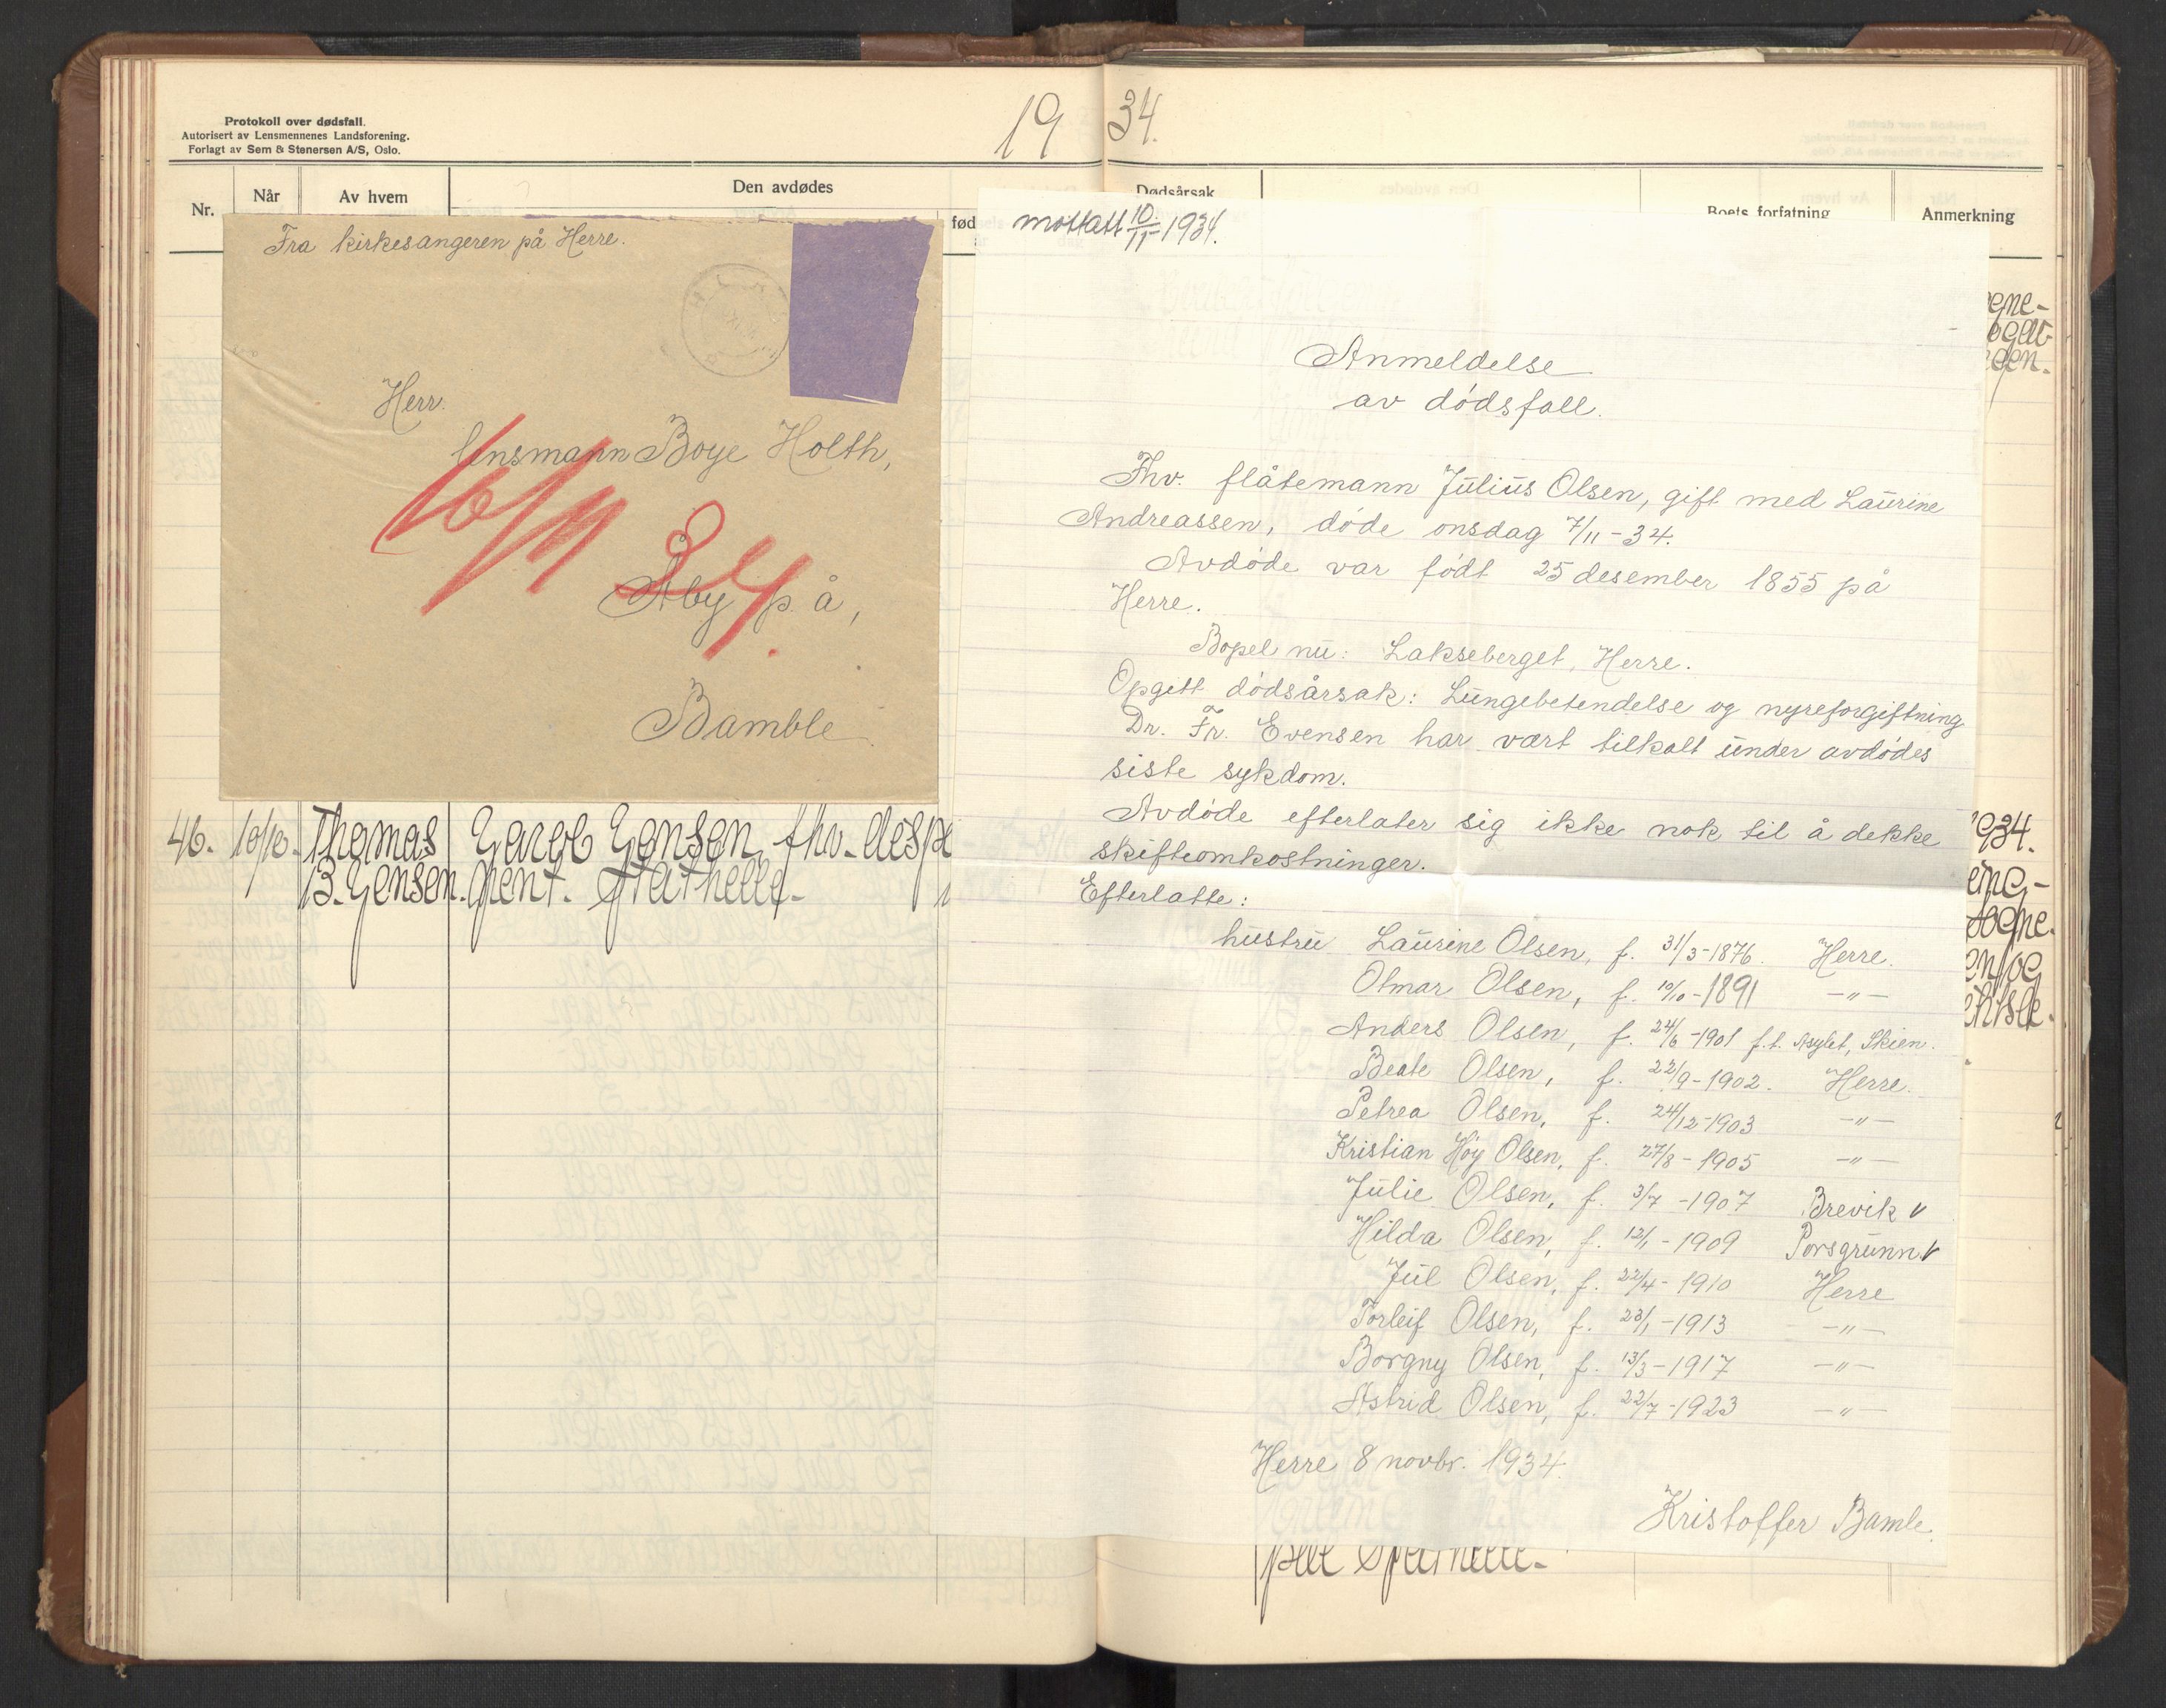 Protokoll over dødsfall.
Autorisert av Lensmennenes Landsforening.
Forlagt av Sem & Stenersen A/S, Oslo.
19 34.
Nr.
Når
Av hvem
Den avdødes
fød
Dødsårsak
Boets forfatning
Anmerkning
Fra kirkesangeren på Herre.
Herr.
lensmann Boye Holth,
10/11 34.
Åby p. å,
Bamble
46. 10/10. Thomas
B. Jensen.
Jacob Jensen, fhv. disp
pent. Stathelle.
mottatt 10/11-1934.
Anmeldelse
av dødsfall.
Fhv. flåtemann Julius Olsen, gift med Laurine
Andreassen, døde onsdag 7/11-34.
Avdøde var født 25 desember 1855 på
Herre.
Bopel nu: Lakseberget, Herre.
Opgitt dødsårsak: Lungebetendelse og nyreforgiftning
Dr. Fr. Evensen har vært tilkalt under avdødes
siste sykdom.
Avdøde efterlater sig ikke nok til å dekke
skifteomkostninger.
Efterlatte:
hustru Laurine Olsen, f. 31/3-1876. Herre.
Otmar Olsen, f. 10/10-1891 -"-
Anders Olsen, f. 24/6-1901 f.t. Asylet, Skien.
Beate Olsen, f. 22/9-1902. Herre.
Petrea Olsen, f. 24/12-1903 -"-
Kristian Høy Olsen, f. 27/8-1905 -"-
Julie Olsen, f. 3/7-1907 Brevik v
Hilda Olsen, f. 12/1-1909 Porsgrunn v
Jul Olsen, f. 22/4-1910 Herre
Torleif Olsen, f. 23/1-1913 -"-
Borgny Olsen, f. 13/3-1917 -"-
Astrid Olsen, f. 22/7-1923 -"-
Herre 8 novbr. 1934.
Kristoffer Bamle.
934.